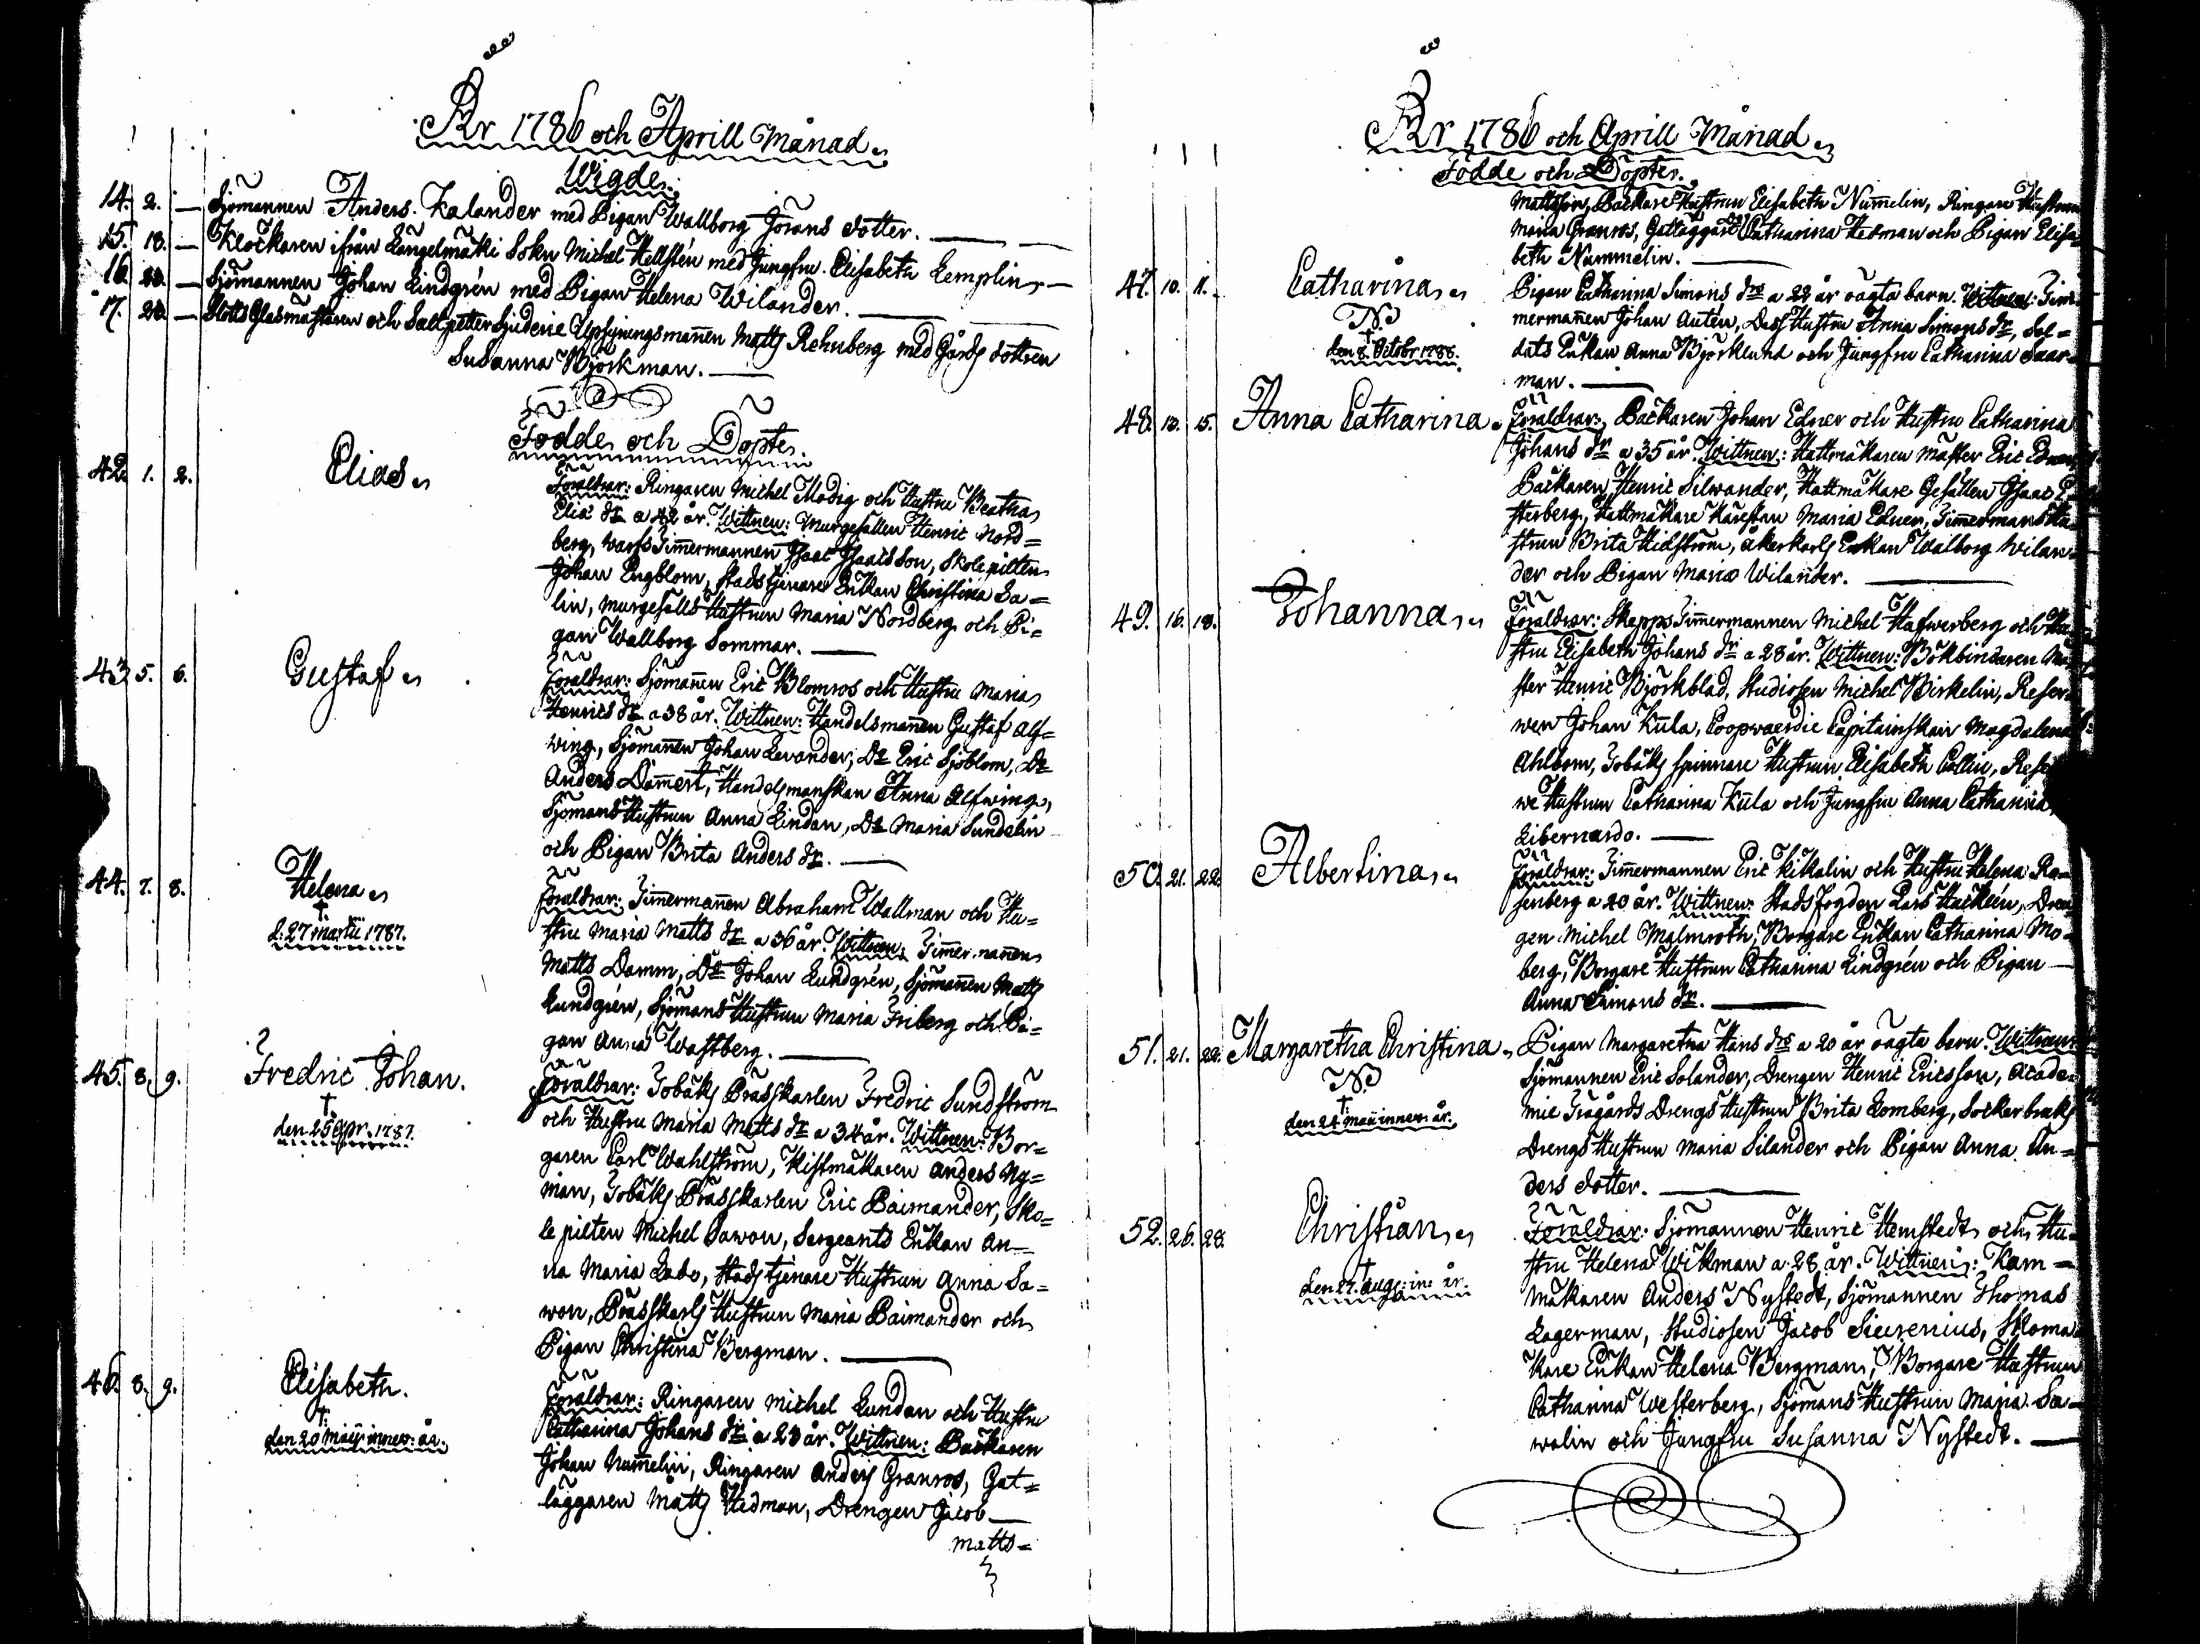 År 1786 och Aprill Månad.
Wigde.
14. 2. — Sjömannen Anders Kalander med Pigan Wallborg Jörans dotter.
15. 18. — Klockaren ifrån Längelmäki Sokn Michel Hellstén med Jungfru Elisabeth Templin.
16. — Sjömannen Johan Lindgrén med Pigan Helena Wilander.
17. — Slotts Glasmästaren och Salpetter Sjuderie Upsyningsmannen Matts Rehnberg med Gårds dottren
Susanna Björkman.
Födde och Döpte.
42. 1. 2. Elias
Föräldrar: Ringaren Michel Modig och Hustru Beatha
Eliæ dr a 42 år. Wittnen: Murgesällen Henric Nord=
berg, warfs Timmermannen Isaac Isaacsson, Skolepilten
Johan Engblom, Stadstjenare Enkan Christina Sa=
lin, Murgesälls Hustrun Maria Nordberg och Pi=
gan Wallborg Sommar.
43. 5. 6. Gustaf
Föräldrar: Sjömannen Eric Blomros och Hustru Maria
Henrics dr a 38 år. Wittnen: Handelsmannen Gustaf Alf=
wing, Sjömannen Johan Levander, Dr Eric Sjöblom, Dr
Anders Dammert, Handelsmanskan Anna Alfwing,
Sjömans Hustrun Anna Lindan, Dr Maria Sundelin
och Pigan Brita Anders dr.
44. 7. 8. Helena
†
d. 27 Martii 1787.
Föräldrar: Timmermannen Abraham Wallman och Hu=
stru Maria Matts dr a 36 år. Wittnen: Timmermannen
Matts Damm, Dr Johan Lundgrén, Sjömannen Matts
Lundgrén, Sjömans Hustrun Maria Friberg och Pi=
gan Anna Wastberg.
45. 8. 9. Fredric Johan.
†
den 25 Apr. 1787.
Föräldrar: Tobaks Brässkarlen Fredric Sundström
och Hustru Maria Matts dr a 34 år. Wittnen: Bor=
garen Carl Wahlström, Kistmakaren Anders Ny=
man, Tobaks Brässkarlen Eric Baimander, Sko=
le pilten Michel Sawon, Sergeants Enkan An=
na Maria Labo, Stadstjenare Hustrun Anna Sa=
won, Brässkarls Hustrun Maria Baimander och
Pigan Christina Bergman.
46. 8. 9. Elisabeth.
†
den 20 Maii innev: år.
Föräldrar: Ringaren Michel Lundan och Hustru
Catharina Johans dr a 28 år. Wittnen: Backaren
Johan Nummelin, Ringaren Anders Granros, Gat=
läggaren Matts Hedman, Drengen Jacob
Matts=
År 1786 och Aprill Månad.
Födde och Döpte.
Mattsson, Backare Hustrun Elisabeth Nummelin, Ringare Hustrun
Maria Granros, Gatläggare Catharina Hedman och Pigan Elisa=
beth Nummelin.
47. 10. 11. Catharina
N
†
den 8. Octobr 1786.
Pigan Catharina Simons drs a 22 år oägta barn. Wittnen: Tim=
mermannen Johan Auten, Dess Hustru Anna Simons dr, Sol=
dats Enkan Anna Björklund och Jungfru Catharina Saar=
man.
48. 13. 15. Anna Catharina.
Föräldrar: Backaren Johan Edner och Hustru Catharina
Johans dr a 35 år. Wittnen: Hattmakaren Mäster Eric Edner,
Backaren Henric Silwander, Hattmakare Gesällen Isaac
sterberg, Hattmakare Käresten Maria Edner, Timmermans Hu=
strun Brita Hidström, åkerkarls Enkan Walborg Wilan=
der och Pigan Maria Wilander.
49. 16. 18. Johanna
Föräldrar: Skepps Timmermannen Michel Hafwerberg och Hu=
stru Elisabeth Johans dr a 28 år. Wittnen: Bokbindaren Mä=
ster Henric Björkblad, Studiosen Michel Birkelin, Reser=
wen Johan Kula, Coopvaerdie Capitainskan Magdalena
Ahlbom, Tobaks spinnare Hustrun Elisabeth Collin, Reser=
we Hustrun Catharina Kula och Jungfru Anna Catharina
Libernardo.
50. 21. 22. Albertina
Föräldrar: Timmermannen Eric Kikalin och Hustru Helena Ro=
senberg a 40 år. Wittnen: Stadsfogden Lars Hackleén, Dren=
gen Michel Malmroth, Borgare Enkan Catharina Mo=
berg, Borgare Hustrun Catharina Lindgrén och Pigan
Anna Simons dr.
51. 21. 22. Margaretha Christina
N
†
den 24 Maii innev: år.
Pigan Margaretha Hans drs a 20 år oägta barn. Wittnen:
Sjömannen Eric Solander, Drengen Henric Ericsson, Acade=
mie Trägårds Drengs Hustrun Brita Lomberg, Sockerbruks
Drengs Hustrun Maria Silander och Pigan Anna An=
ders dotter.
52. 26. 28. Christian
†
den 27. Aug: in: år.
Föräldrar: Sjömannen Henric Hemstedt och Hu=
stru Helena Wikman a 28 år. Wittnen: Kam=
makaren Anders Nystedt, Sjömannen Thomas
Lagerman, Studiosen Jacob Sieurenius, Skoma=
kare Enkan Helena Bergman, Borgare Hustrun
Catharina Westerberg, Sjömans Hustrun Maria Sa=
wolin och Jungfru Susanna Nystedt.